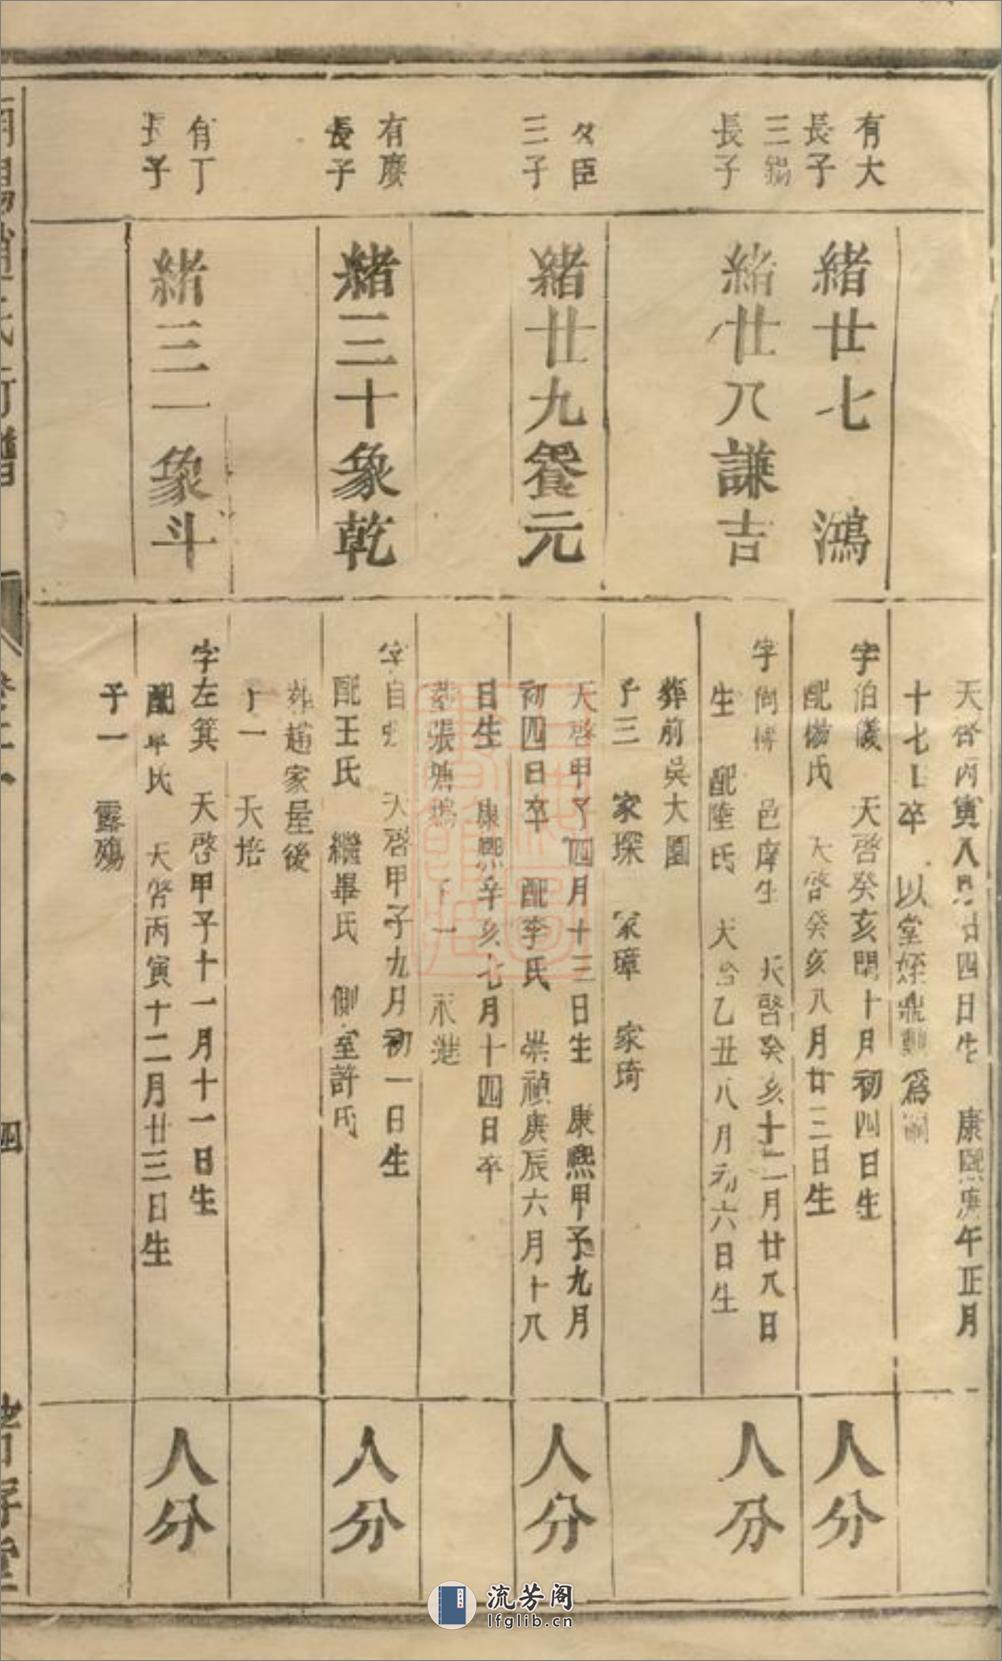 天啓丙寅八月廿四日生 康熙庚午正月
十七日卒 以堂姪鼎勳爲嗣
有大
長子
緒廿七 鴻
字伯儀 天啓癸亥閏十月初四日生
配楊氏 天啓癸亥八月廿三日生
人分
三錫
長子
緒廿八謙吉
字尚 邑庠生 天啓癸亥十二月廿八日
生 配陸氏 天啓乙丑八月初六日生
葬前吳大園
子三 家琛 家璋 家琦
人分
臣
三子
緒廿九養元
天啓甲子四月十三日生 康熙甲子九月
初四日卒 配李氏 崇禎庚辰六月十八
日生 康熙辛亥七月十四日卒
葬張塘塢 子一
人分
有慶
長子
緒三十象乾
字自 天啓甲子九月初一日生
配王氏 繼畢氏 側室許氏
葬趙家屋後
子一 天培
人分
有丁
長子
緒三一象斗
字左箕 天啓甲子十一月十一日生
配畢氏 天啓丙寅十二月廿三日生
子一 霞殤
人分
趙氏
四